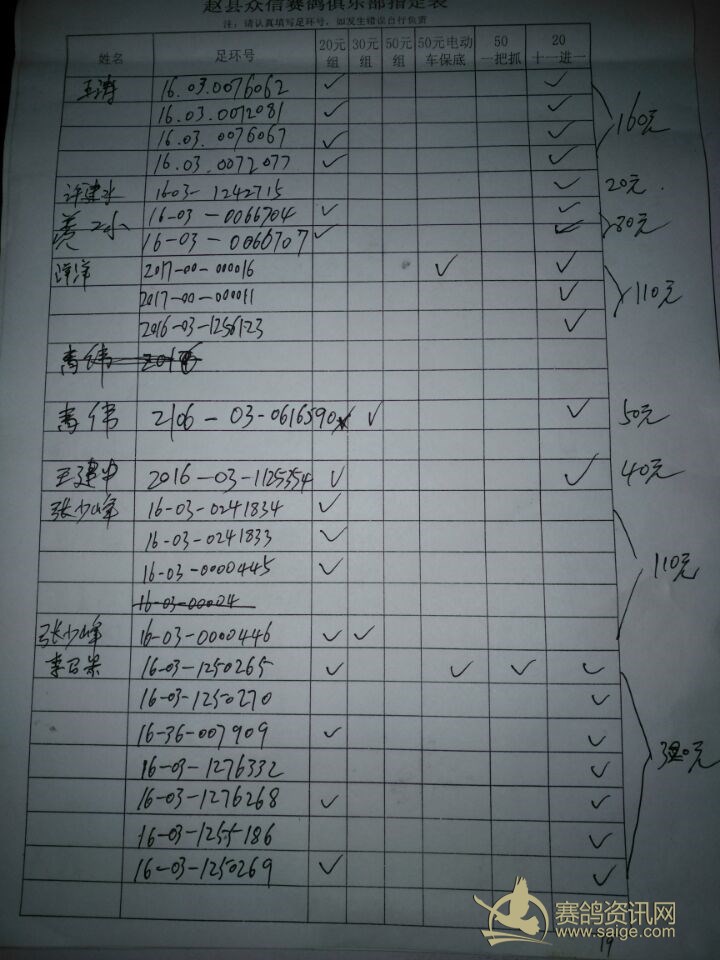 赵县众信赛鸽俱乐部指定表
注：请认真填写足环号，如发生错误自行负责
姓名 足环号 20元组 30元组 50元组 50元电动车保底 50一把抓 20十一进一
王涛 16.03.0076062 ✓ ✓
16.03.0072081 ✓ ✓
16.03.0076067 ✓ ✓ 160元
16.03.0072077 ✓ ✓
许建水 1603-1242715 ✓ 20元.
黄二小 16-03-0066704 ✓ ✓
16-03-0066707 ✓ ✓ 80元
洋洋 2017-00-000016 ✓ ✓
2017-00-000011 ✓ 110元
2016-03-1256123 ✓
高伟
高伟 2106-03-0616590 ✓ ✓ 50元
王建中 2016-03-1125354 ✓ ✓ 40元
张少峰 16-03-0241834 ✓
16-03-0241833 ✓
16-03-0000445 ✓ 110元
16-03-00004
张少峰 16-03-0000446 ✓ ✓
16-03-1250265 ✓ ✓ ✓ ✓
16-03-1250270 ✓
16-36-007909 ✓ ✓
16-03-1276332 ✓
16-03-1276268 ✓ ✓
16-03-1255186 ✓
16-03-1250269 ✓ ✓
赛鸽资讯网
www.saige.com
19